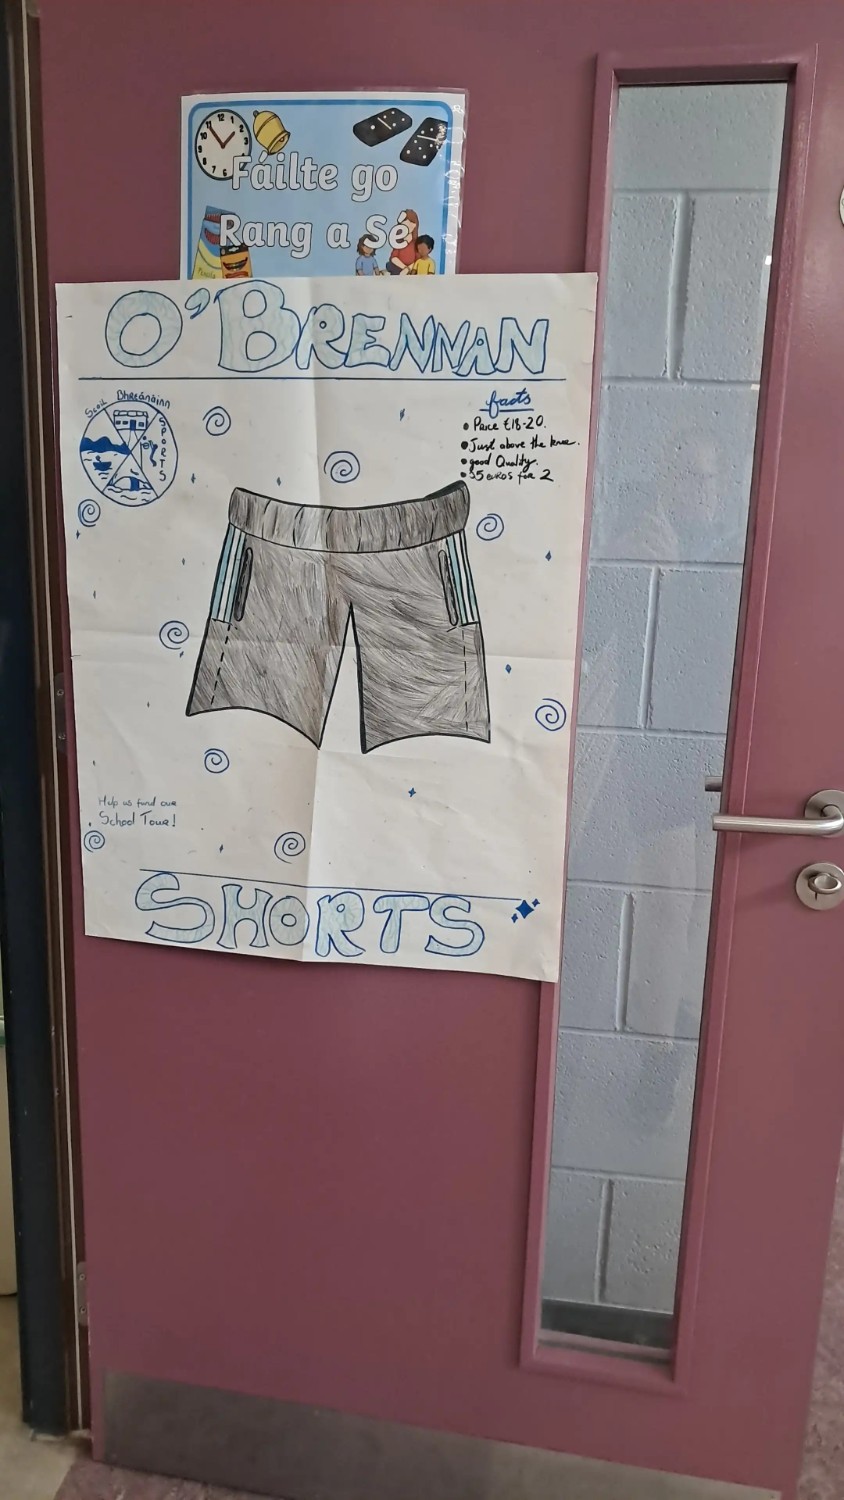 Fáilte go
Rang a Sé
O'BRENNAN
Scoil Bhreánainn
SPORTS
facts
• Price €18-20.
• Just above the knee.
• good Quality.
• 35 euros for 2
Help us fund our
School Tour!
SHORTS